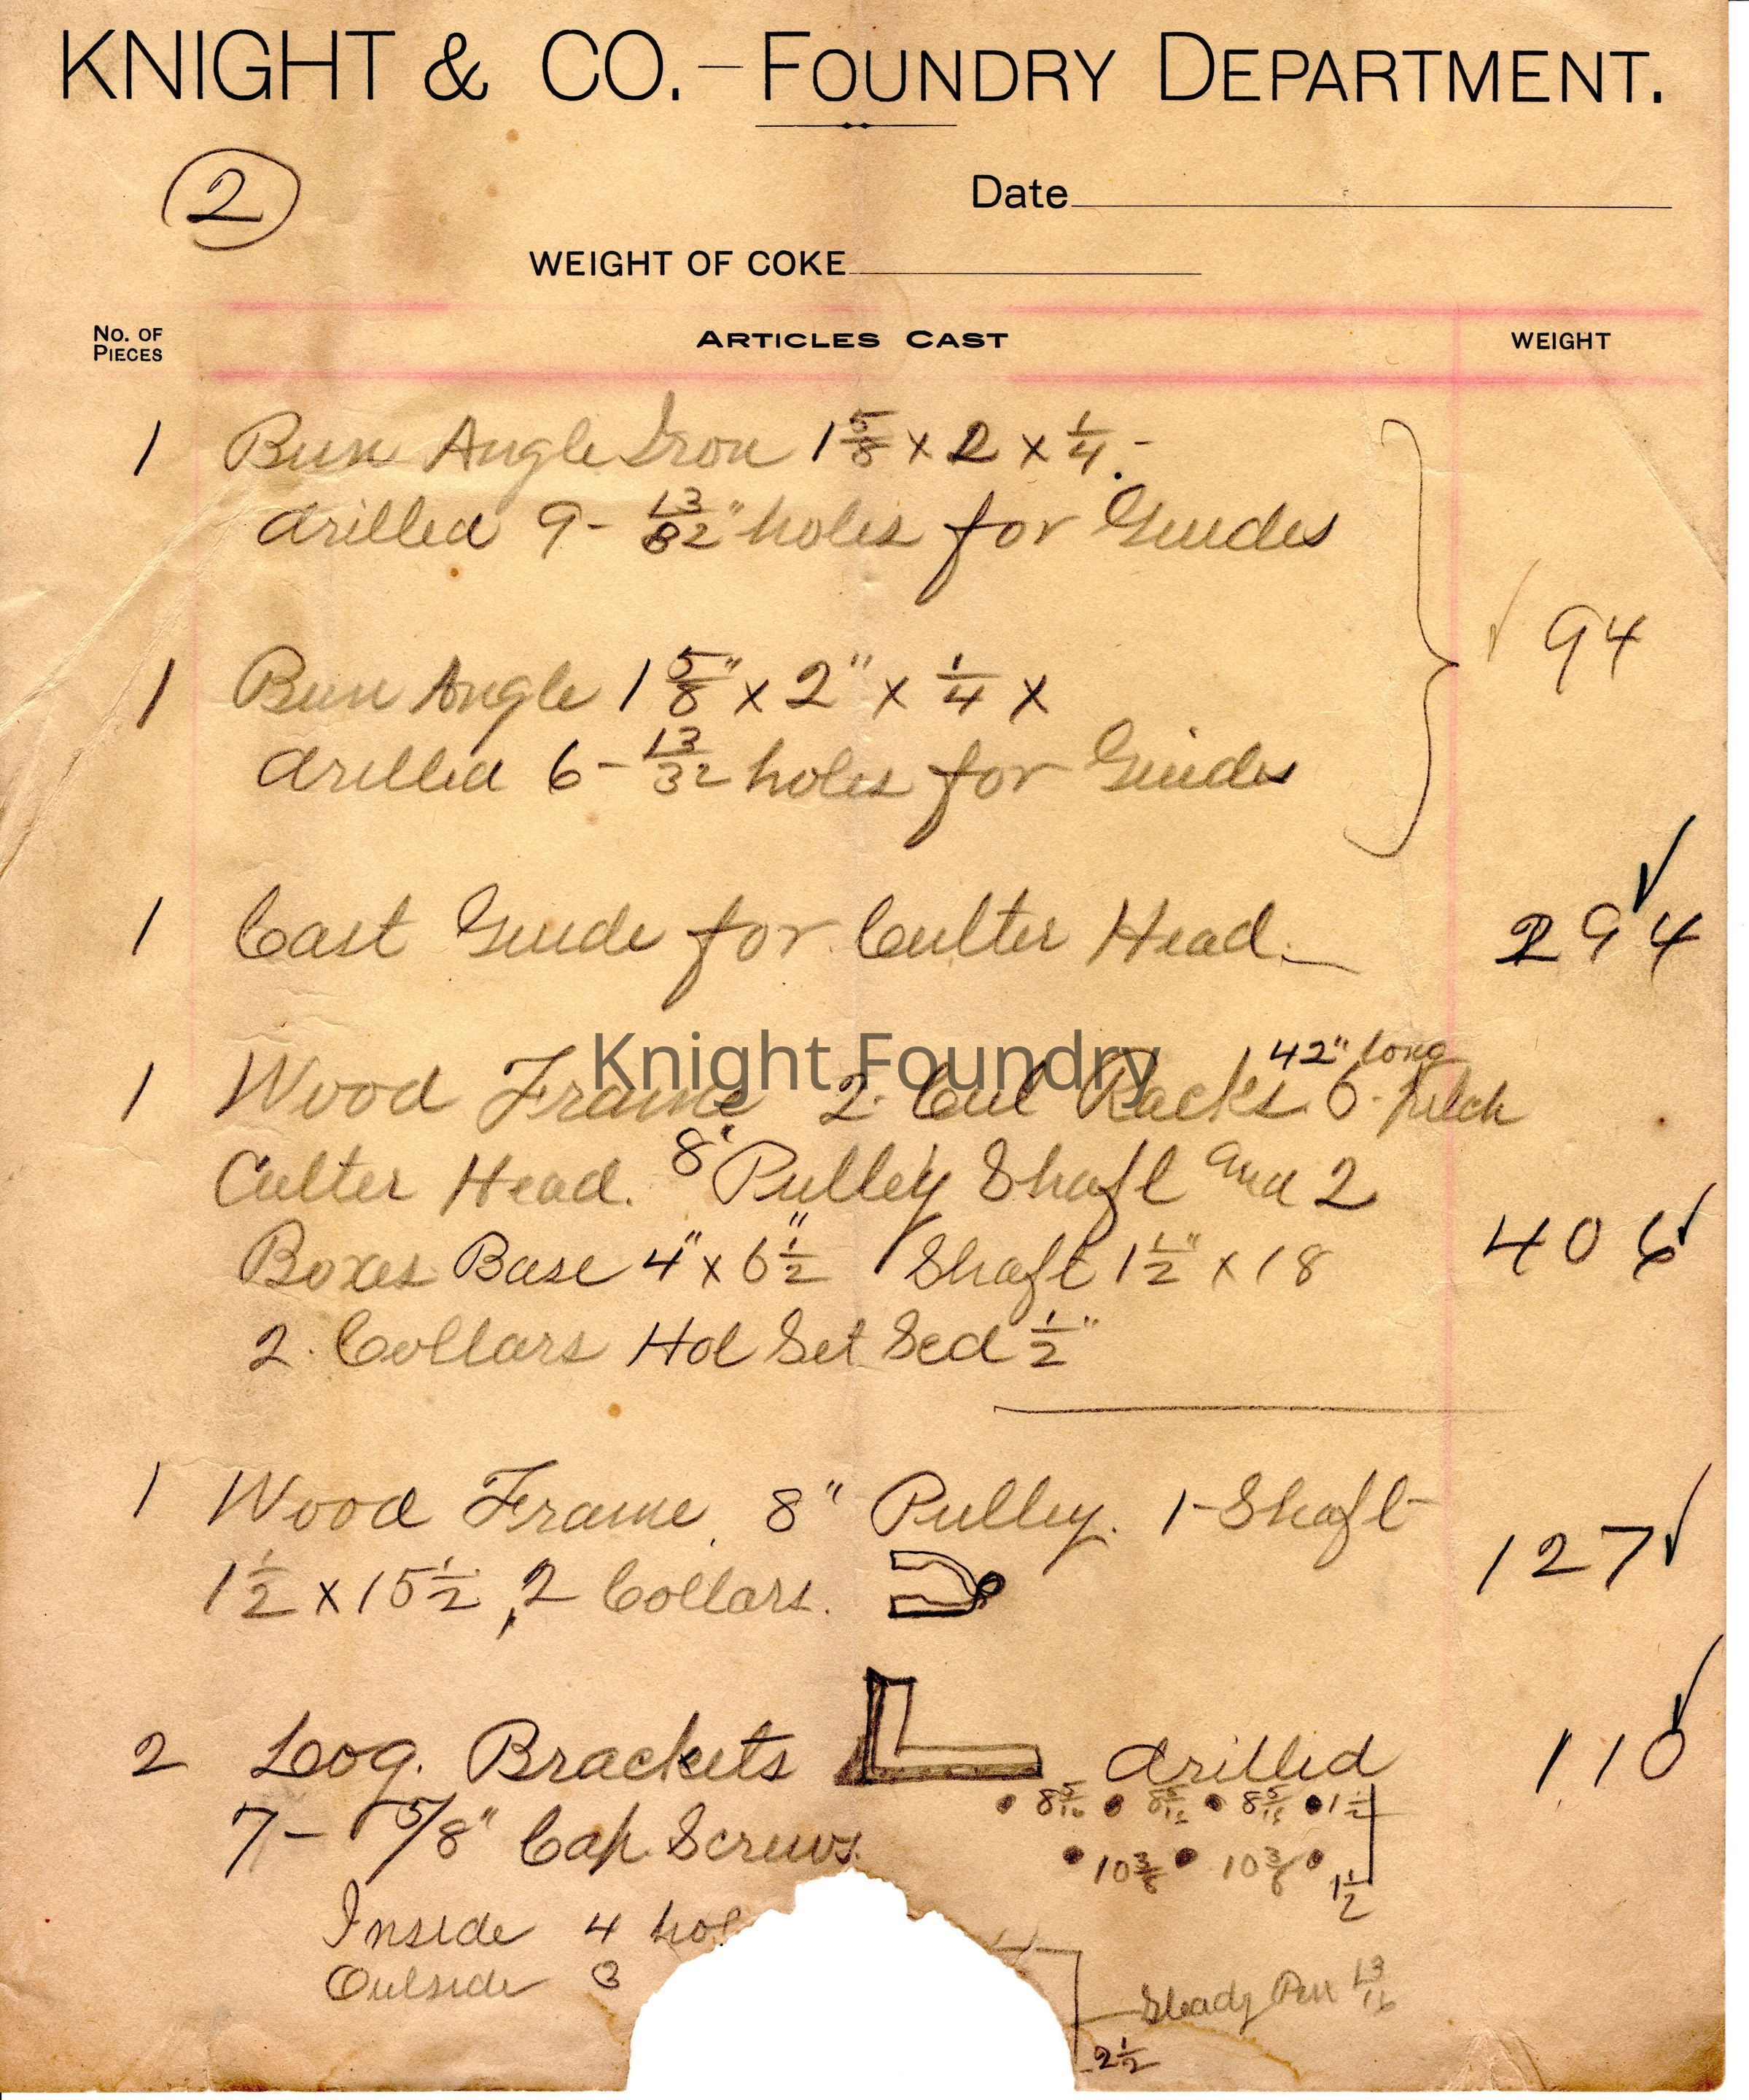 KNIGHT & CO.—FOUNDRY DEPARTMENT.
2
Date
WEIGHT OF COKE
No. OF PIECES
ARTICLES CAST
WEIGHT
1 Angle Iron 1 5/8 x 2 x 1/4.-
drilled 9- 13/32" holes for Guides
94
1 Angle 1 5/8" x 2" x 1/4 x
drilled 6- 13/32 holes for Guides
1 Cast Guide for Cutter Head. 294
Knight Foundry
42" long
1 Wood Frame 2. Cut Racks 6. Pitch
Cutter Head. 8" Pulley Shaft and 2
Boxes Base 4" x 6 1/2" Shaft 1 1/2" x 18 406
2. Collars Hol Set Scd 1/2"
1 Wood Frame. 8" Pulley. 1-Shaft
1 1/2 x 15 1/2, 2 Collars. 127
2 Log. Brackets drilled 110
8 5/16 8 5/16 8 5/16 1 1/2
7- 5/8" Cap Screws.
10 3/8 10 3/8 1 1/2
Inside 4
Outside 3
Steady Pin 13/16
2 1/2